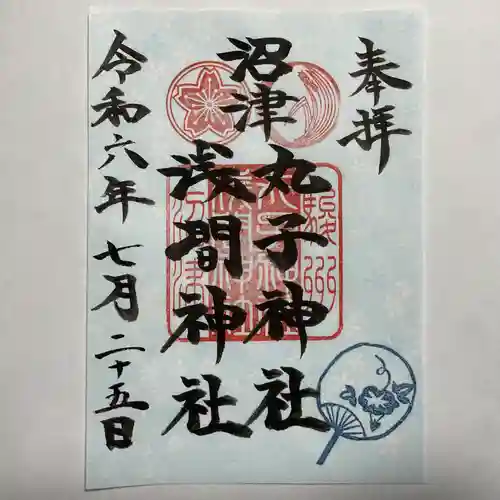 奉拝
沼津
丸子神社
浅間神社
令和六年七月二十五日